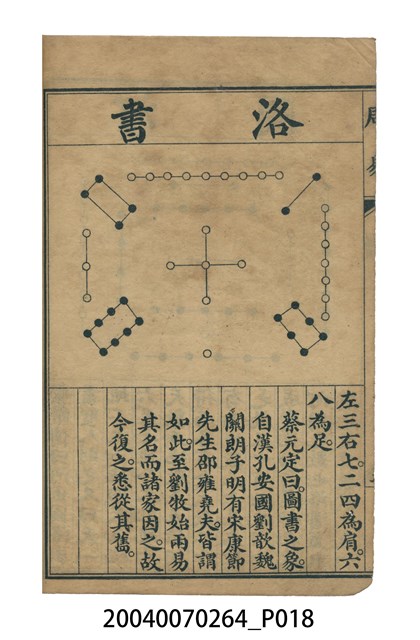 洛書
左三右七。二四為肩。六
八為足。
蔡元定曰圖書之象。
自漢孔安國劉歆魏
關朗子明有宋康節
先生邵雍堯夫。皆謂
如此。至劉牧始兩易
其名。而諸家因之。故
今復之。悉從其舊。
20040070264_P018